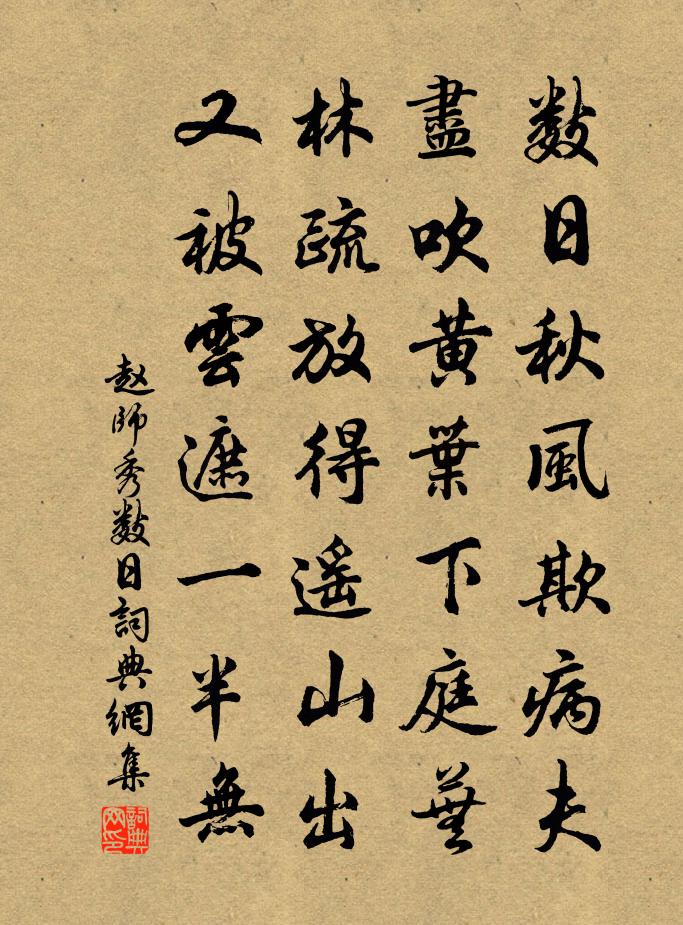 數日秋風欺病夫
盡吹黃葉下庭蕪
林疏放得遥山出
又被雲遮一半無
赵師秀數日詞典網集
詞典网印